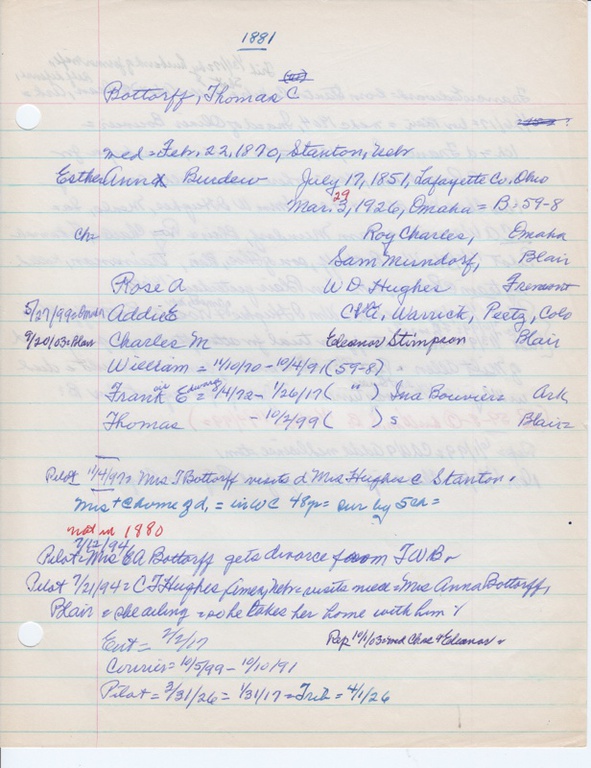 1881
Bottorff, Thomas C
md = Feb. 22, 1870, Stanton, Nebr
Esther Anna Burdew July 17, 1851, Lafayette Co. Ohio
Mar. 29, 1926, Omaha = B: 59-8
Ch Roy Charles, Omaha
Sam Mundorf, Blair
Rose A W D Hughes Fremont
5/27/99=Omaha Addie E C E, Warrick, Peetz, Colo
9/20/03=Blair Charles M Eleanor Stimpson Blair
William = 11/10/70 - 10/4/91 (59-8)
Frank E = 9/4/72 - 1/26/17 ( " ) Ina Bouvier = Ark
Thomas - 10/2/99 ( ) s Blair =
Pilot 11/4/97 = Mrs T Bottorff visits d Mrs Hughes C Stanton.
Mrs + C home of d. = in WC 48 yr = sur by 5 ch =
not in 1880
7/12/94
Pilot = Mrs EA Bottorff gets divorce from TWB.
Pilot 7/21/94 = C T Hughes, Amer, Nebr = visits = Mrs Anna Bottorff,
Blair = she ailing = so he takes her home with him
Ent = 2/2/17 Rep 10/1/03 = md Chas + Eleanor.
Courier = 10/5/99 - 10/10/91
Pilot = 3/31/26 = 1/31/17 = Trib = 4/1/26